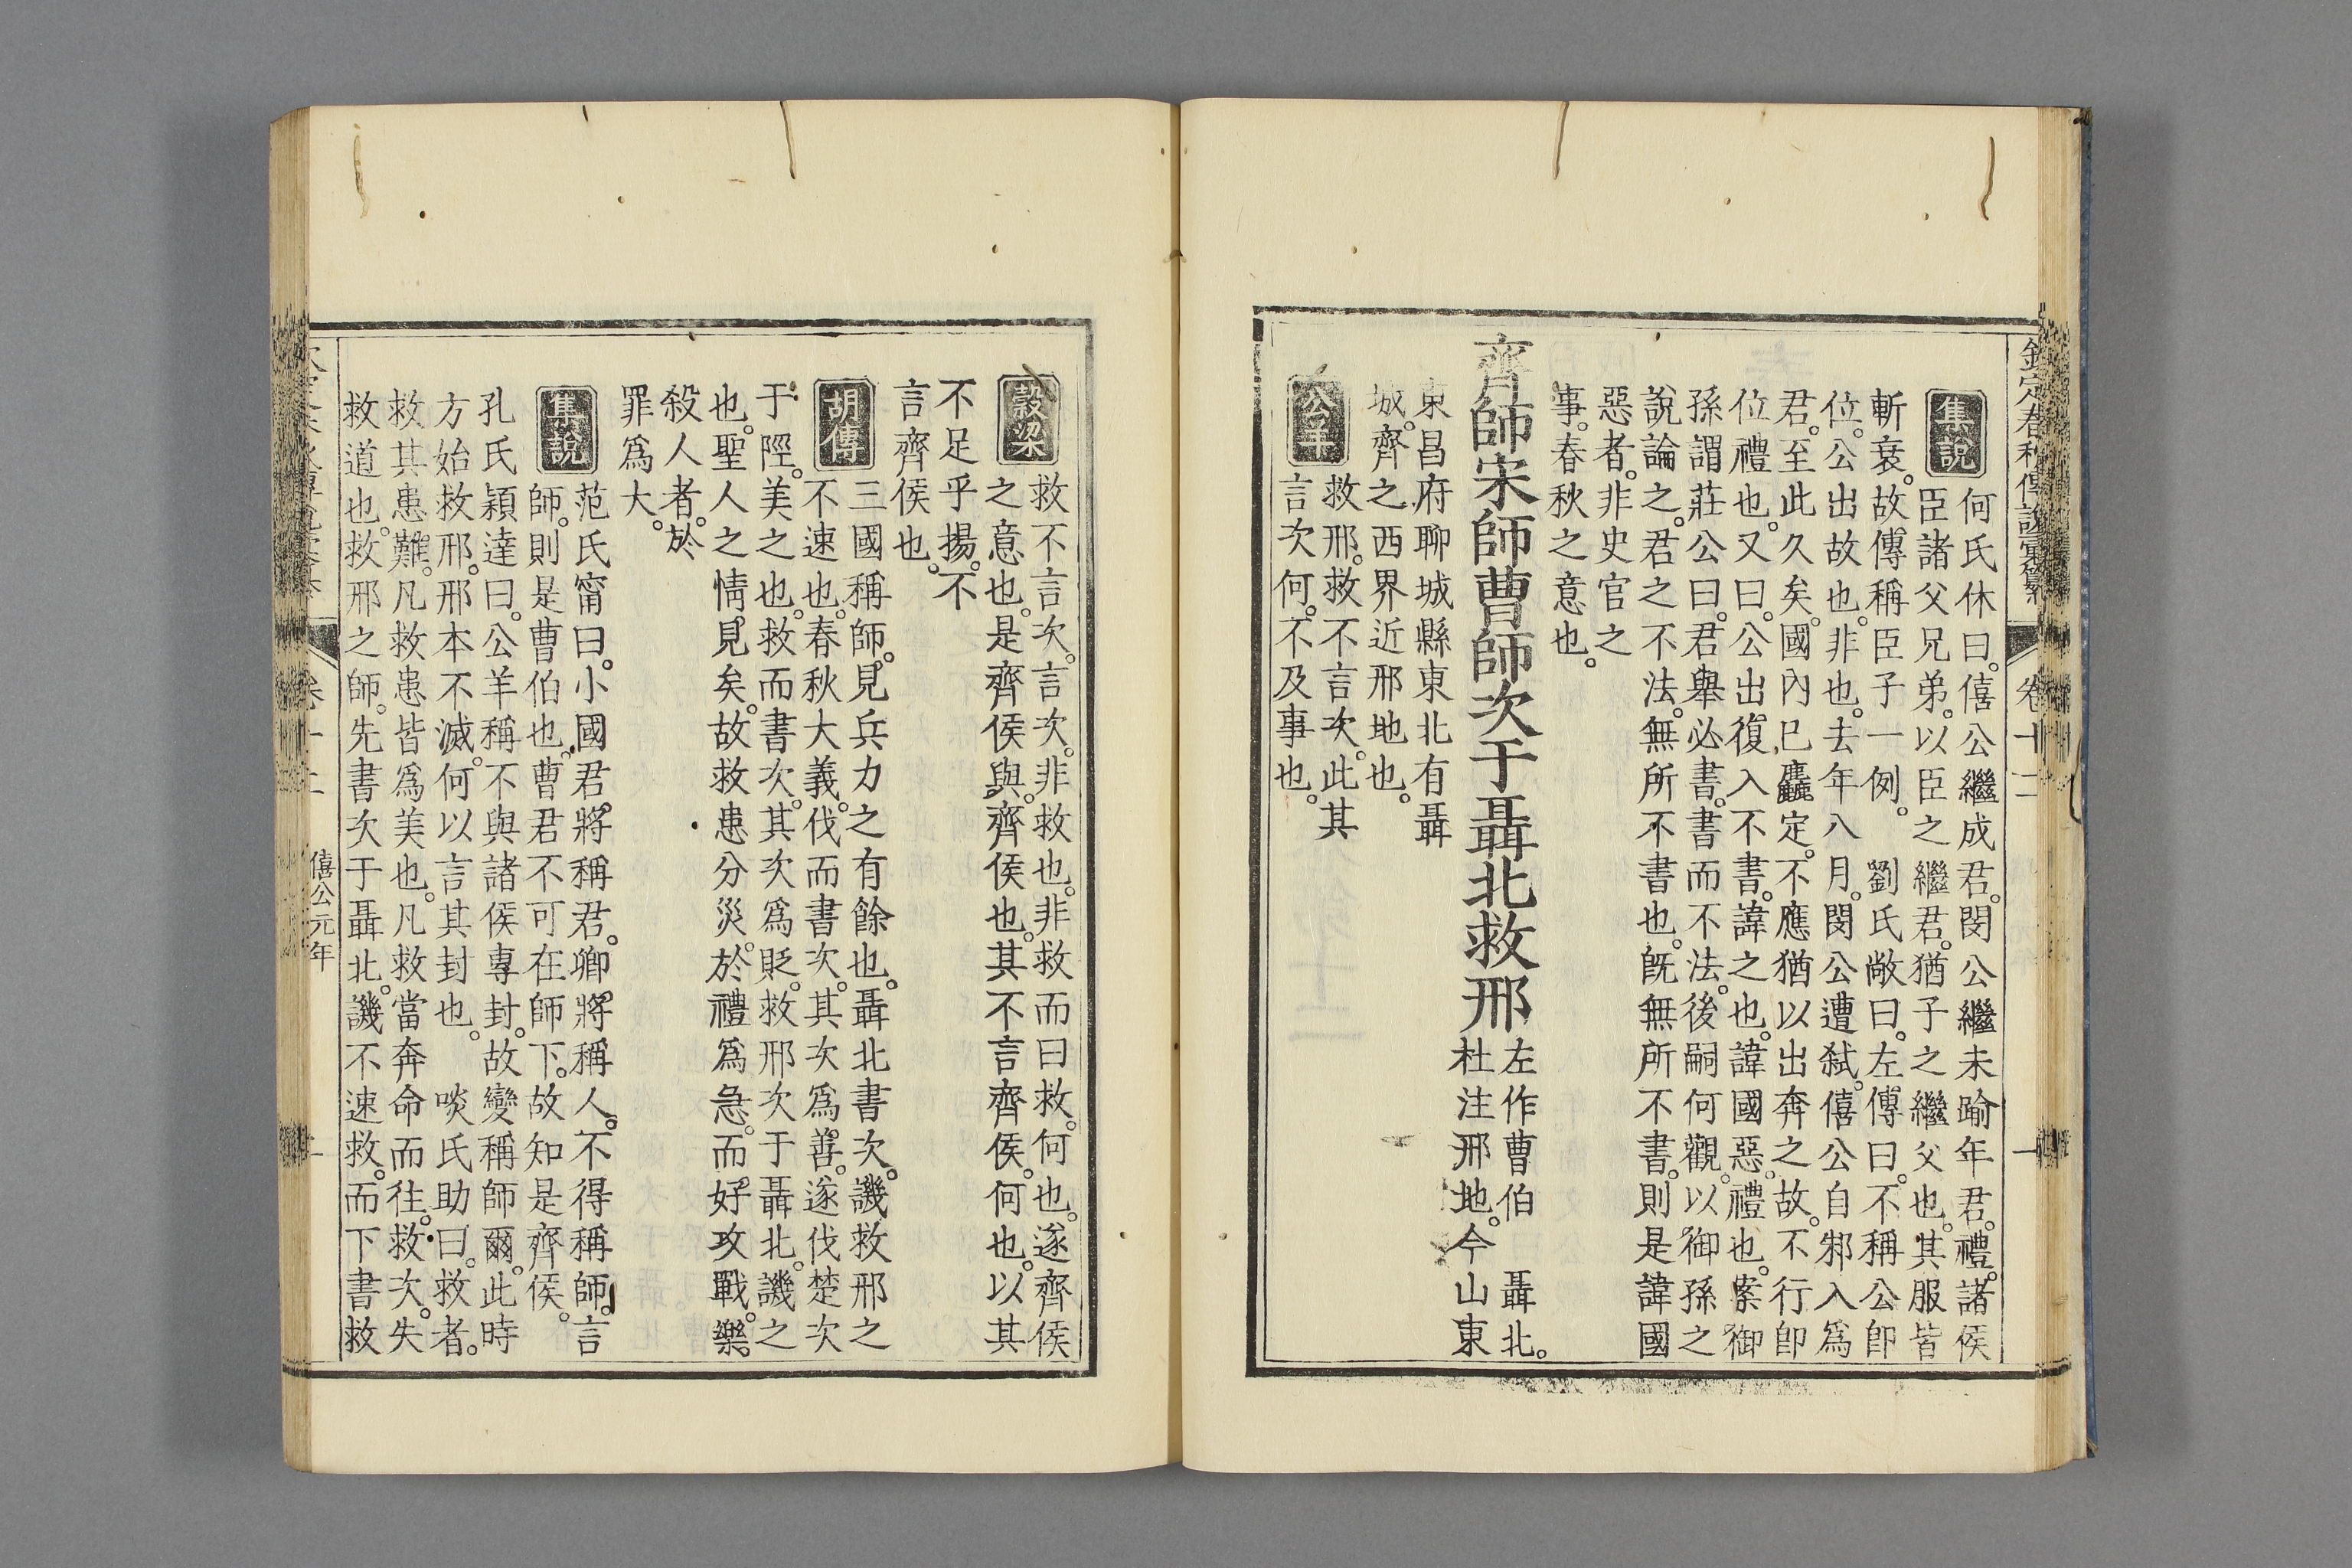 欽定春秋傳說彙纂 卷十二 一
集說 何氏休曰。僖公繼成君。閔公繼未踰年君。禮。諸侯
臣諸父兄弟。以臣之繼君。猶子之繼父也。其服皆
斬衰。故傳稱臣子一例。 劉氏敞曰。左傳曰。不稱公卽
位。公出故也。非也。去年八月。閔公遭弒。僖公自邾入爲
君。至此久矣。國內已麤定。不應猶以出奔之故。不行卽
位禮也。又曰。公出復入不書。諱之也。諱國惡。禮也。案御
孫謂莊公曰。君舉必書。書而不法。後嗣何觀。以御孫之
說論之。君之不法。無所不書也。旣無所不書。則是諱國
惡者。非史官之
事。春秋之意也。
齊師宋師曹師次于聶北救邢 左作曹伯 聶北。
杜注邢地。今山東
東昌府聊城縣東北有聶
城。齊之西界近邢地也。
公羊 救邢。救不言次。此其
言次何。不及事也。
穀梁 救不言次。言次。非救也。非救而曰救。何也。遂齊侯
之意也。是齊侯與。齊侯也。其不言齊侯。何也。以其
不足乎揚。不
言齊侯也。
胡傳 三國稱師。見兵力之有餘也。聶北書次。譏救邢之
不速也。春秋大義。伐而書次。其次爲善。遂伐楚次
于陘。美之也。救而書次。其次爲貶。救邢次于聶北。譏之
也。聖人之情見矣。故救患分災。於禮爲急。而好攻戰。樂
殺人者。於
罪爲大。
集說 范氏甯曰。小國君。將稱君。卿。將稱人。不得稱師。言
師。則是曹伯也。曹君不可在師下。故知是齊侯。
孔氏穎達曰。公羊稱不與諸侯專封。故變稱師爾。此時
方始救邢。邢本不滅。何以言其封也。 啖氏助曰。救者。
救其患難。凡救患皆爲美也。凡救當奔命而往。救次。失
救道也。救邢之師。先書次于聶北。譏不速救。而下書救
僖公元年